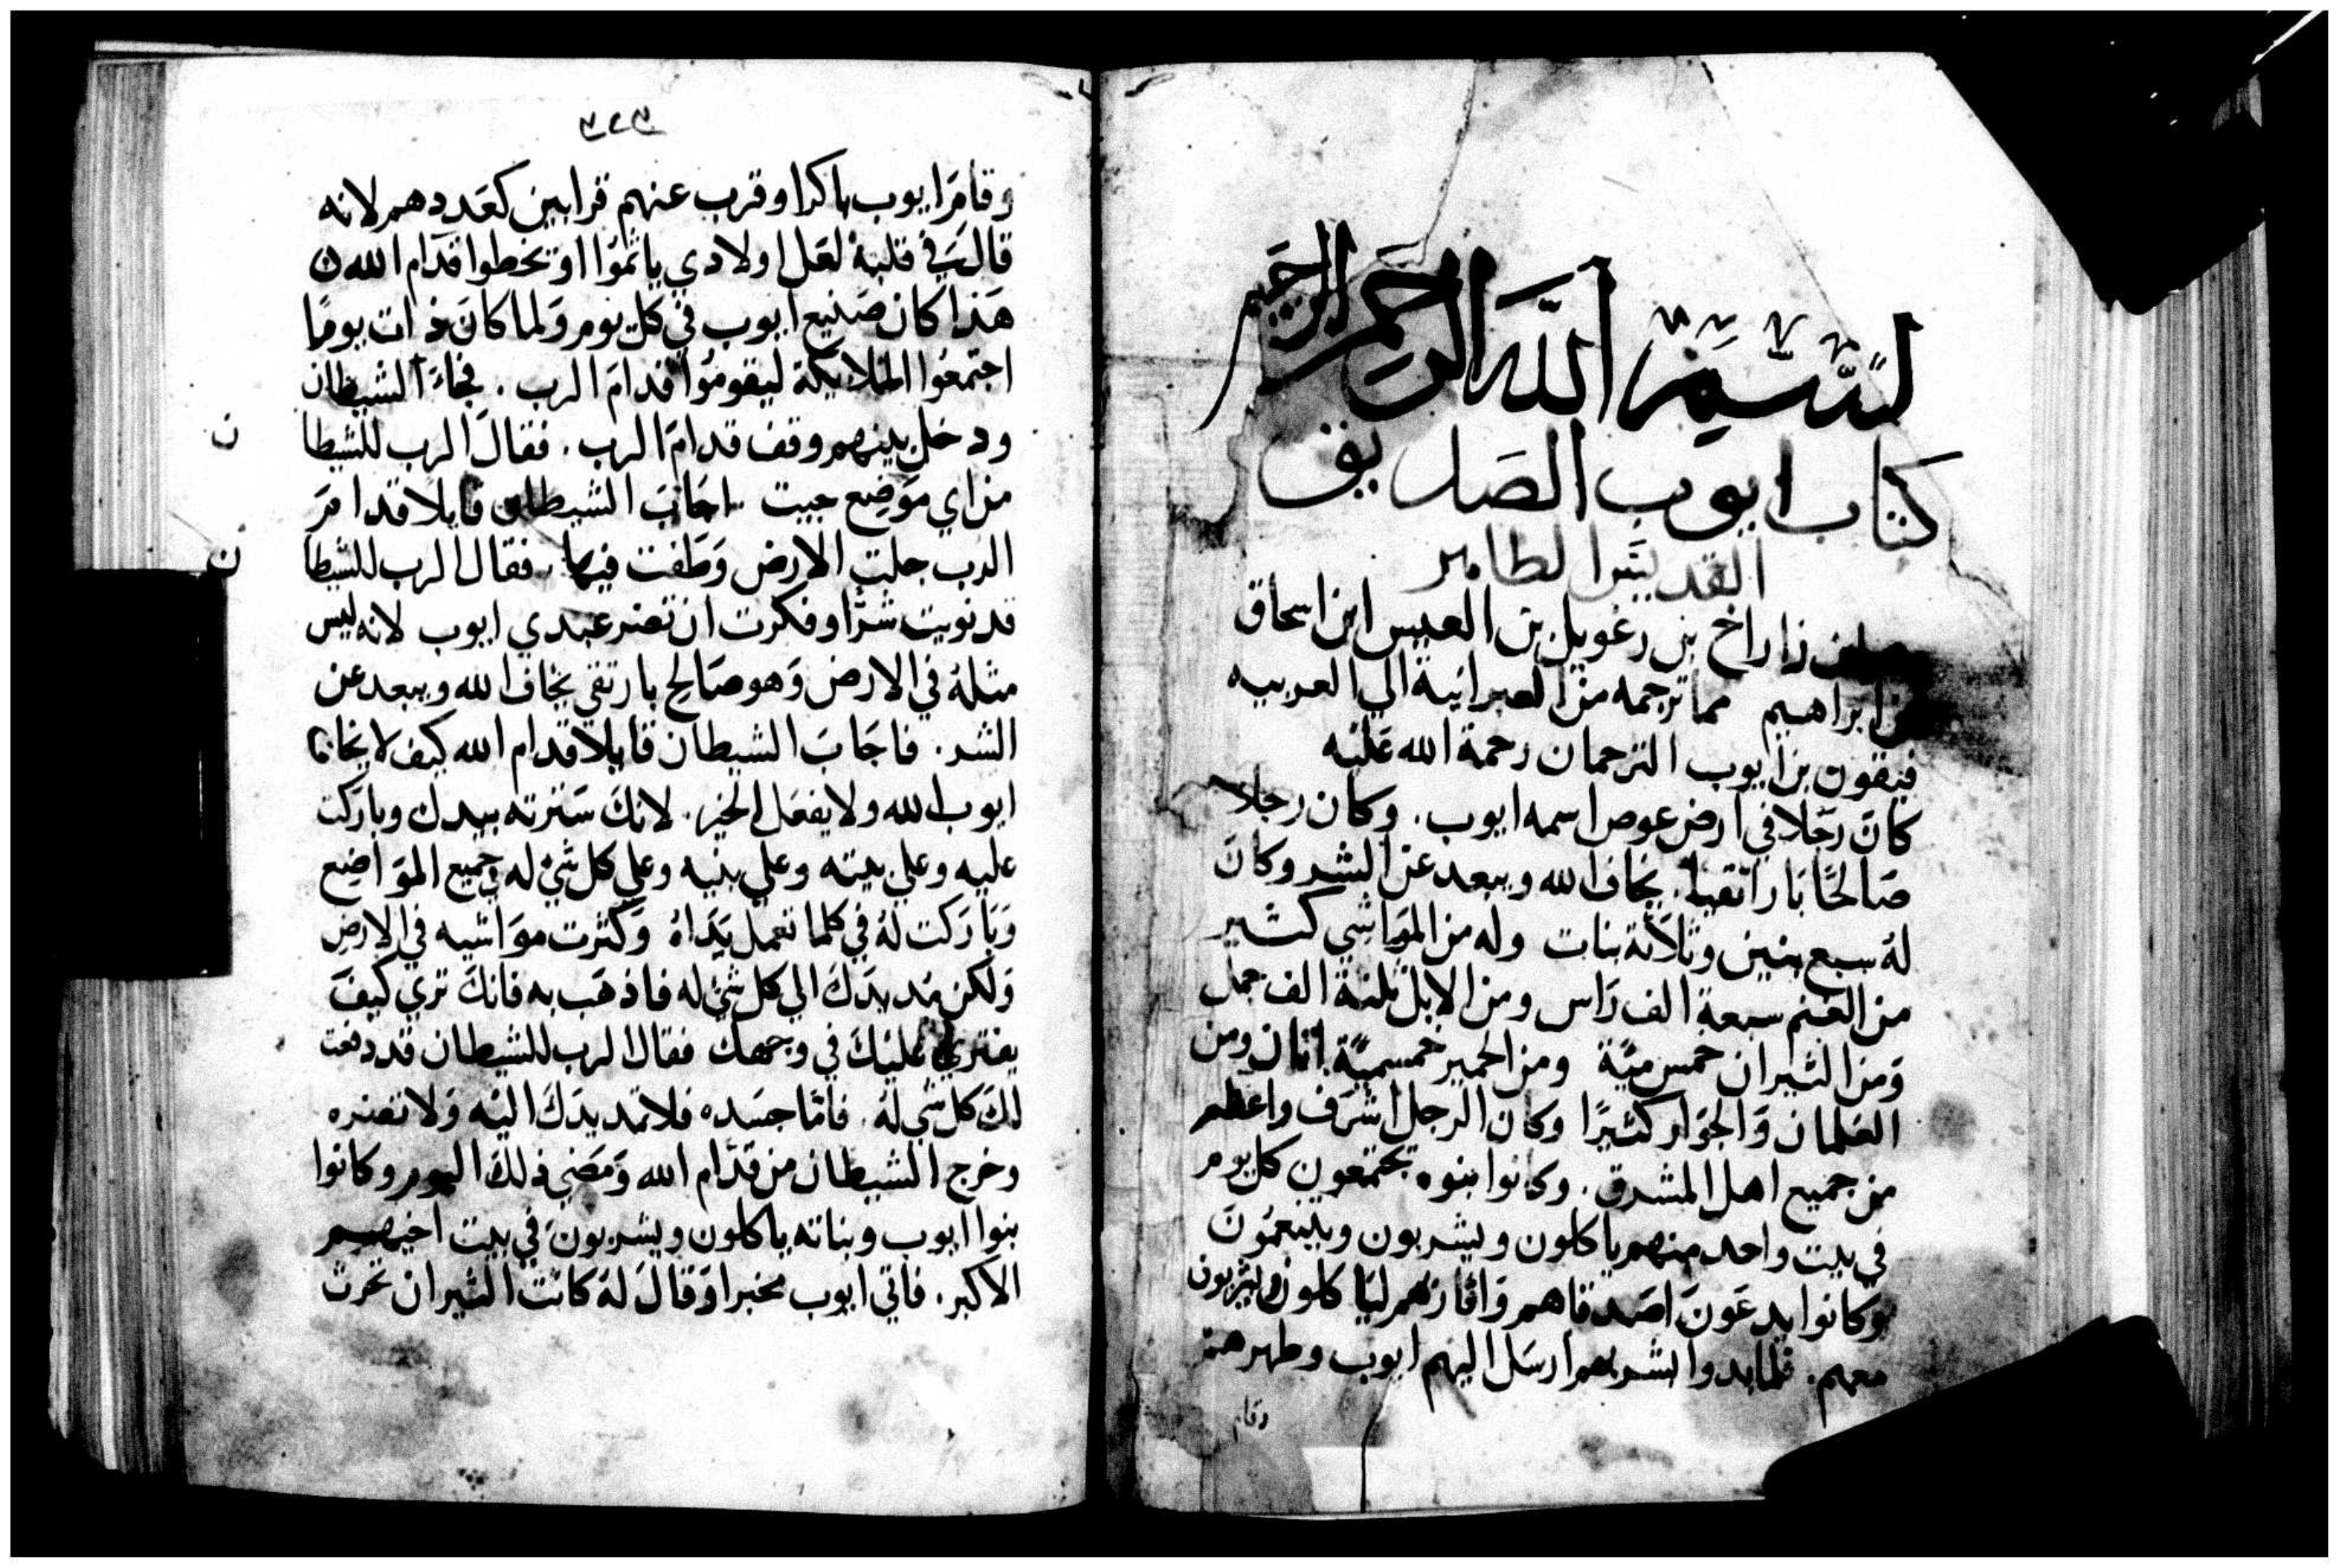 بسم الله الرحمن الرحيم
كتاب ايوب الصديق
القديس الطاهر
زاراخ بن رغويل بن العيس ابن اسحاق
ابراهيم مما ترجمه من العبرانية الي العربيه
فيثون بن ايوب الترجمان رحمة الله عليه
كان رجلا في ارض عوص اسمه ايوب. وكان رجلا
صالحًا بارا تقيا. يخاف الله ويبعد عن الشر وكان
له سبع بنين وثلاثة بنات وله من المواشي كثير
من الغنم سبعة الف راس ومن الابل ثلثة الف جمل
ومن الثيران خمس ميّة ومن الحمير خمسميّة اتان ومن
الغلمان والجوار كثيرًا وكان الرجل اشرف واعظم
من جميع اهل المشرق. وكانوا بنوه يجتمعون كل يوم
في بيت واحد منهم ياكلون ويشربون ويتنعمون
وكانوا يدعون اصدقاهم واقارنهم لياكلون ويشربون
معهم. فلما بدوا بشربهم ارسل اليهم ايوب وطهرهم
وقام
وقام ايوب باكرا وقرب عنهم قرابين كعددهم لانه
قال في قلبه لعل اولادي ياثموا او تخطوا قدام الله ن
هذا كان صنيع ايوب في كل يوم ولما كان ذات يومًا
اجتمعوا الملايكة ليقوموا قدام الرب. فجاء الشيطان
ودخل بينهم وقف قدام الرب. فقال الرب للشيطا ن
من اي موضع جيت اجاب الشيطان قايلا قدام
الرب جلت الارض وطفت فيها. فقال الرب للشيطا ن
قد نويت شرًا وفكرت ان تضر عبدي ايوب لانه ليس
مثله في الارض وهو صالح بار تقي يخاف الله ويبعد عن
الشر. فاجاب الشيطان قايلا قدام الله كيف لا يخاف
ايوب الله ولا يفعل الخير. لانك سترته بيدك وباركت
عليه وعلي بيته وعلي بنيه وعلي كل شي له في جميع المواضيع
وباركت له في كلما تعمل يداه وكثرت مواشيه في الارض
ولكن مد يدك الي كل شي له فاذهب به فانك تري كيف
يفتري عليك في وجهك فقال الرب للشيطان قد دفعت
لك كل شي له. فاما جسده فلا تمد يدك اليه ولا تضره
وخرج الشيطان من قدام الله ومضي ذلك اليوم وكانوا
بنوا ايوب وبناته ياكلون ويشربون في بيت اخيهم
الاكبر. فاتي ايوب مخبرا وقال له كانت الثيران تحرث